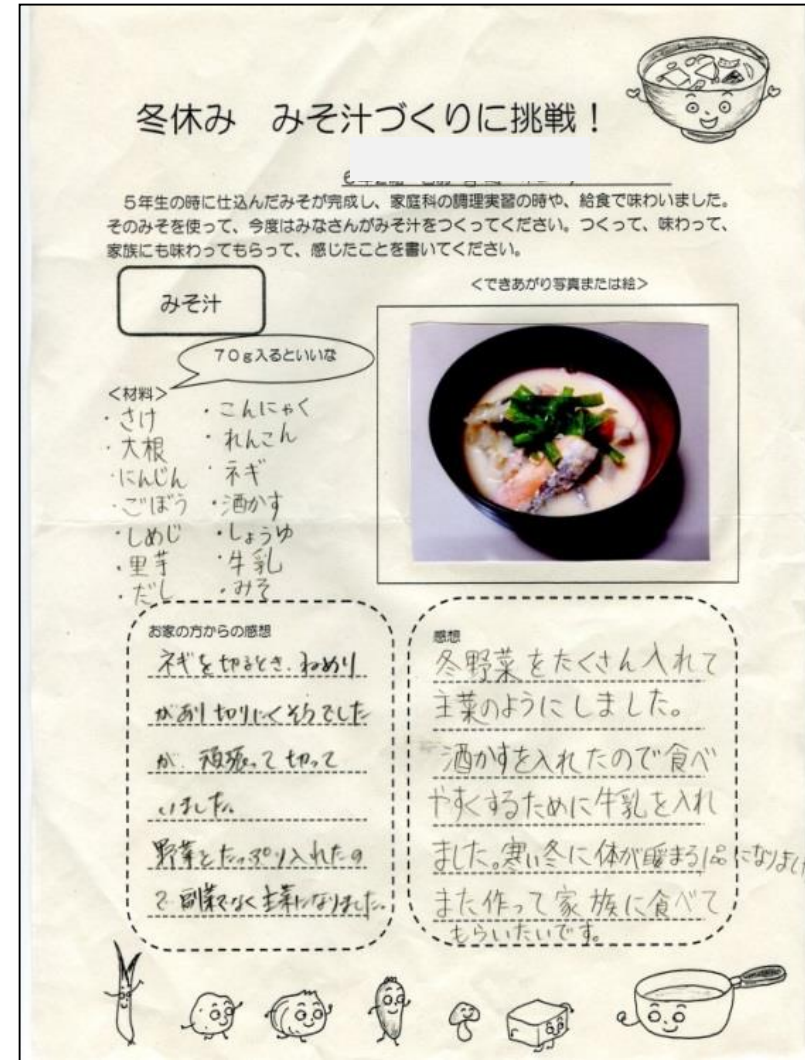 冬休み　みそ汁づくりに挑戦！
５年生の時に仕込んだみそが完成し、家庭科の調理実習の時や、給食で味わいました。
そのみそを使って、今度はみなさんがみそ汁をつくってください。つくって、味わって、
家族にも味わってもらって、感じたことを書いてください。
みそ汁
＜できあがり写真または絵＞
７０ｇ入るといいな
＜材料＞
・さけ
・大根
・にんじん
・ごぼう
・しめじ
・里芋
・だし
・こんにゃく
・れんこん
・ネギ
・酒かす
・しょうゆ
・牛乳
・みそ
お家の方からの感想
ネギを切るとき、ねめり
があり切りにくそうでした
が、頑張って切って
いました。
野菜をたっぷり入れたの
で副菜でなく主菜になりました。
感想
冬野菜をたくさん入れて
主菜のようにしました。
酒かすを入れたので食べ
やすくするために牛乳を入れ
ました。寒い冬に体が暖まる1品になりまし
また作って家族に食べて
もらいたいです。